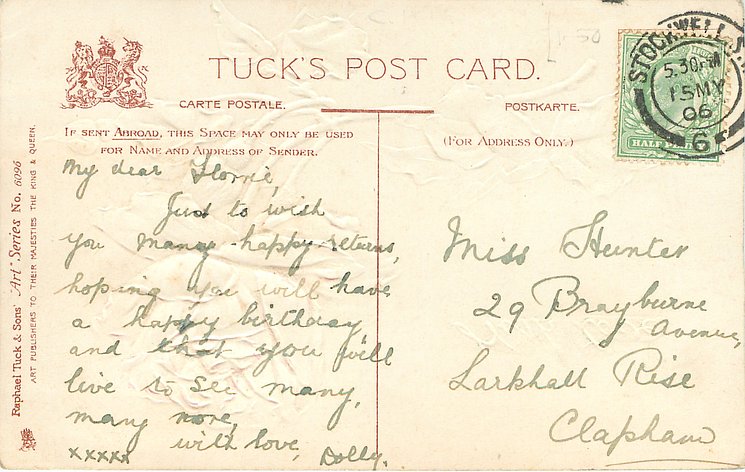 TUCK'S POST CARD.
CARTE POSTALE.
POSTKARTE.
IF SENT ABROAD, THIS SPACE MAY ONLY BE USED
FOR NAME AND ADDRESS OF SENDER.
(FOR ADDRESS ONLY.)
My dear Florrie,
Just to wish
you many happy returns,
hoping you will have
a happy birthday
and that you will
live to see many,
many more,
with love,
xxxxx Dolly.
Miss Hunter
29 Brayburne
Avenue,
Larkhall Rise
Clapham
Raphael Tuck & Sons' "Art" Series No. 6096
ART PUBLISHERS TO THEIR MAJESTIES THE KING & QUEEN.
STOCKWELL S.
5.30PM
15MY
06
6
HALF